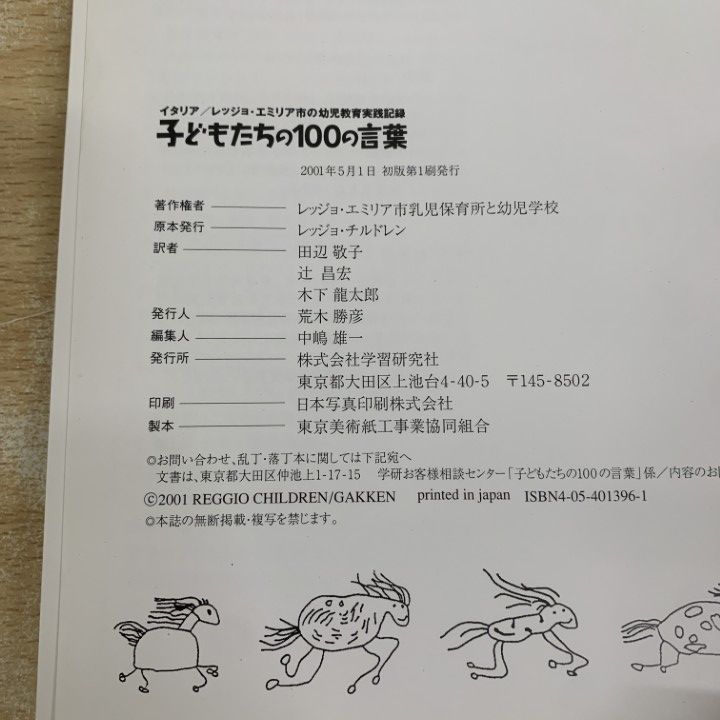 イタリア／レッジョ・エミリア市の幼児教育実践記録
子どもたちの100の言葉
2001年5月1日 初版第1刷発行
著作権者 レッジョ・エミリア市乳児保育所と幼児学校
原本発行 レッジョ・チルドレン
訳者 田辺 敬子
辻 昌宏
木下 龍太郎
発行人 荒木 勝彦
編集人 中嶋 雄一
発行所 株式会社学習研究社
東京都大田区上池台4-40-5 〒145-8502
印刷 日本写真印刷株式会社
製本 東京美術紙工事業協同組合
◎お問い合わせ、乱丁・落丁本に関しては下記宛へ
文書は、東京都大田区仲池上1-17-15 学研お客様相談センター「子どもたちの100の言葉」係／内容のお
©2001 REGGIO CHILDREN/GAKKEN printed in japan ISBN4-05-401396-1
◎本誌の無断掲載・複写を禁じます。